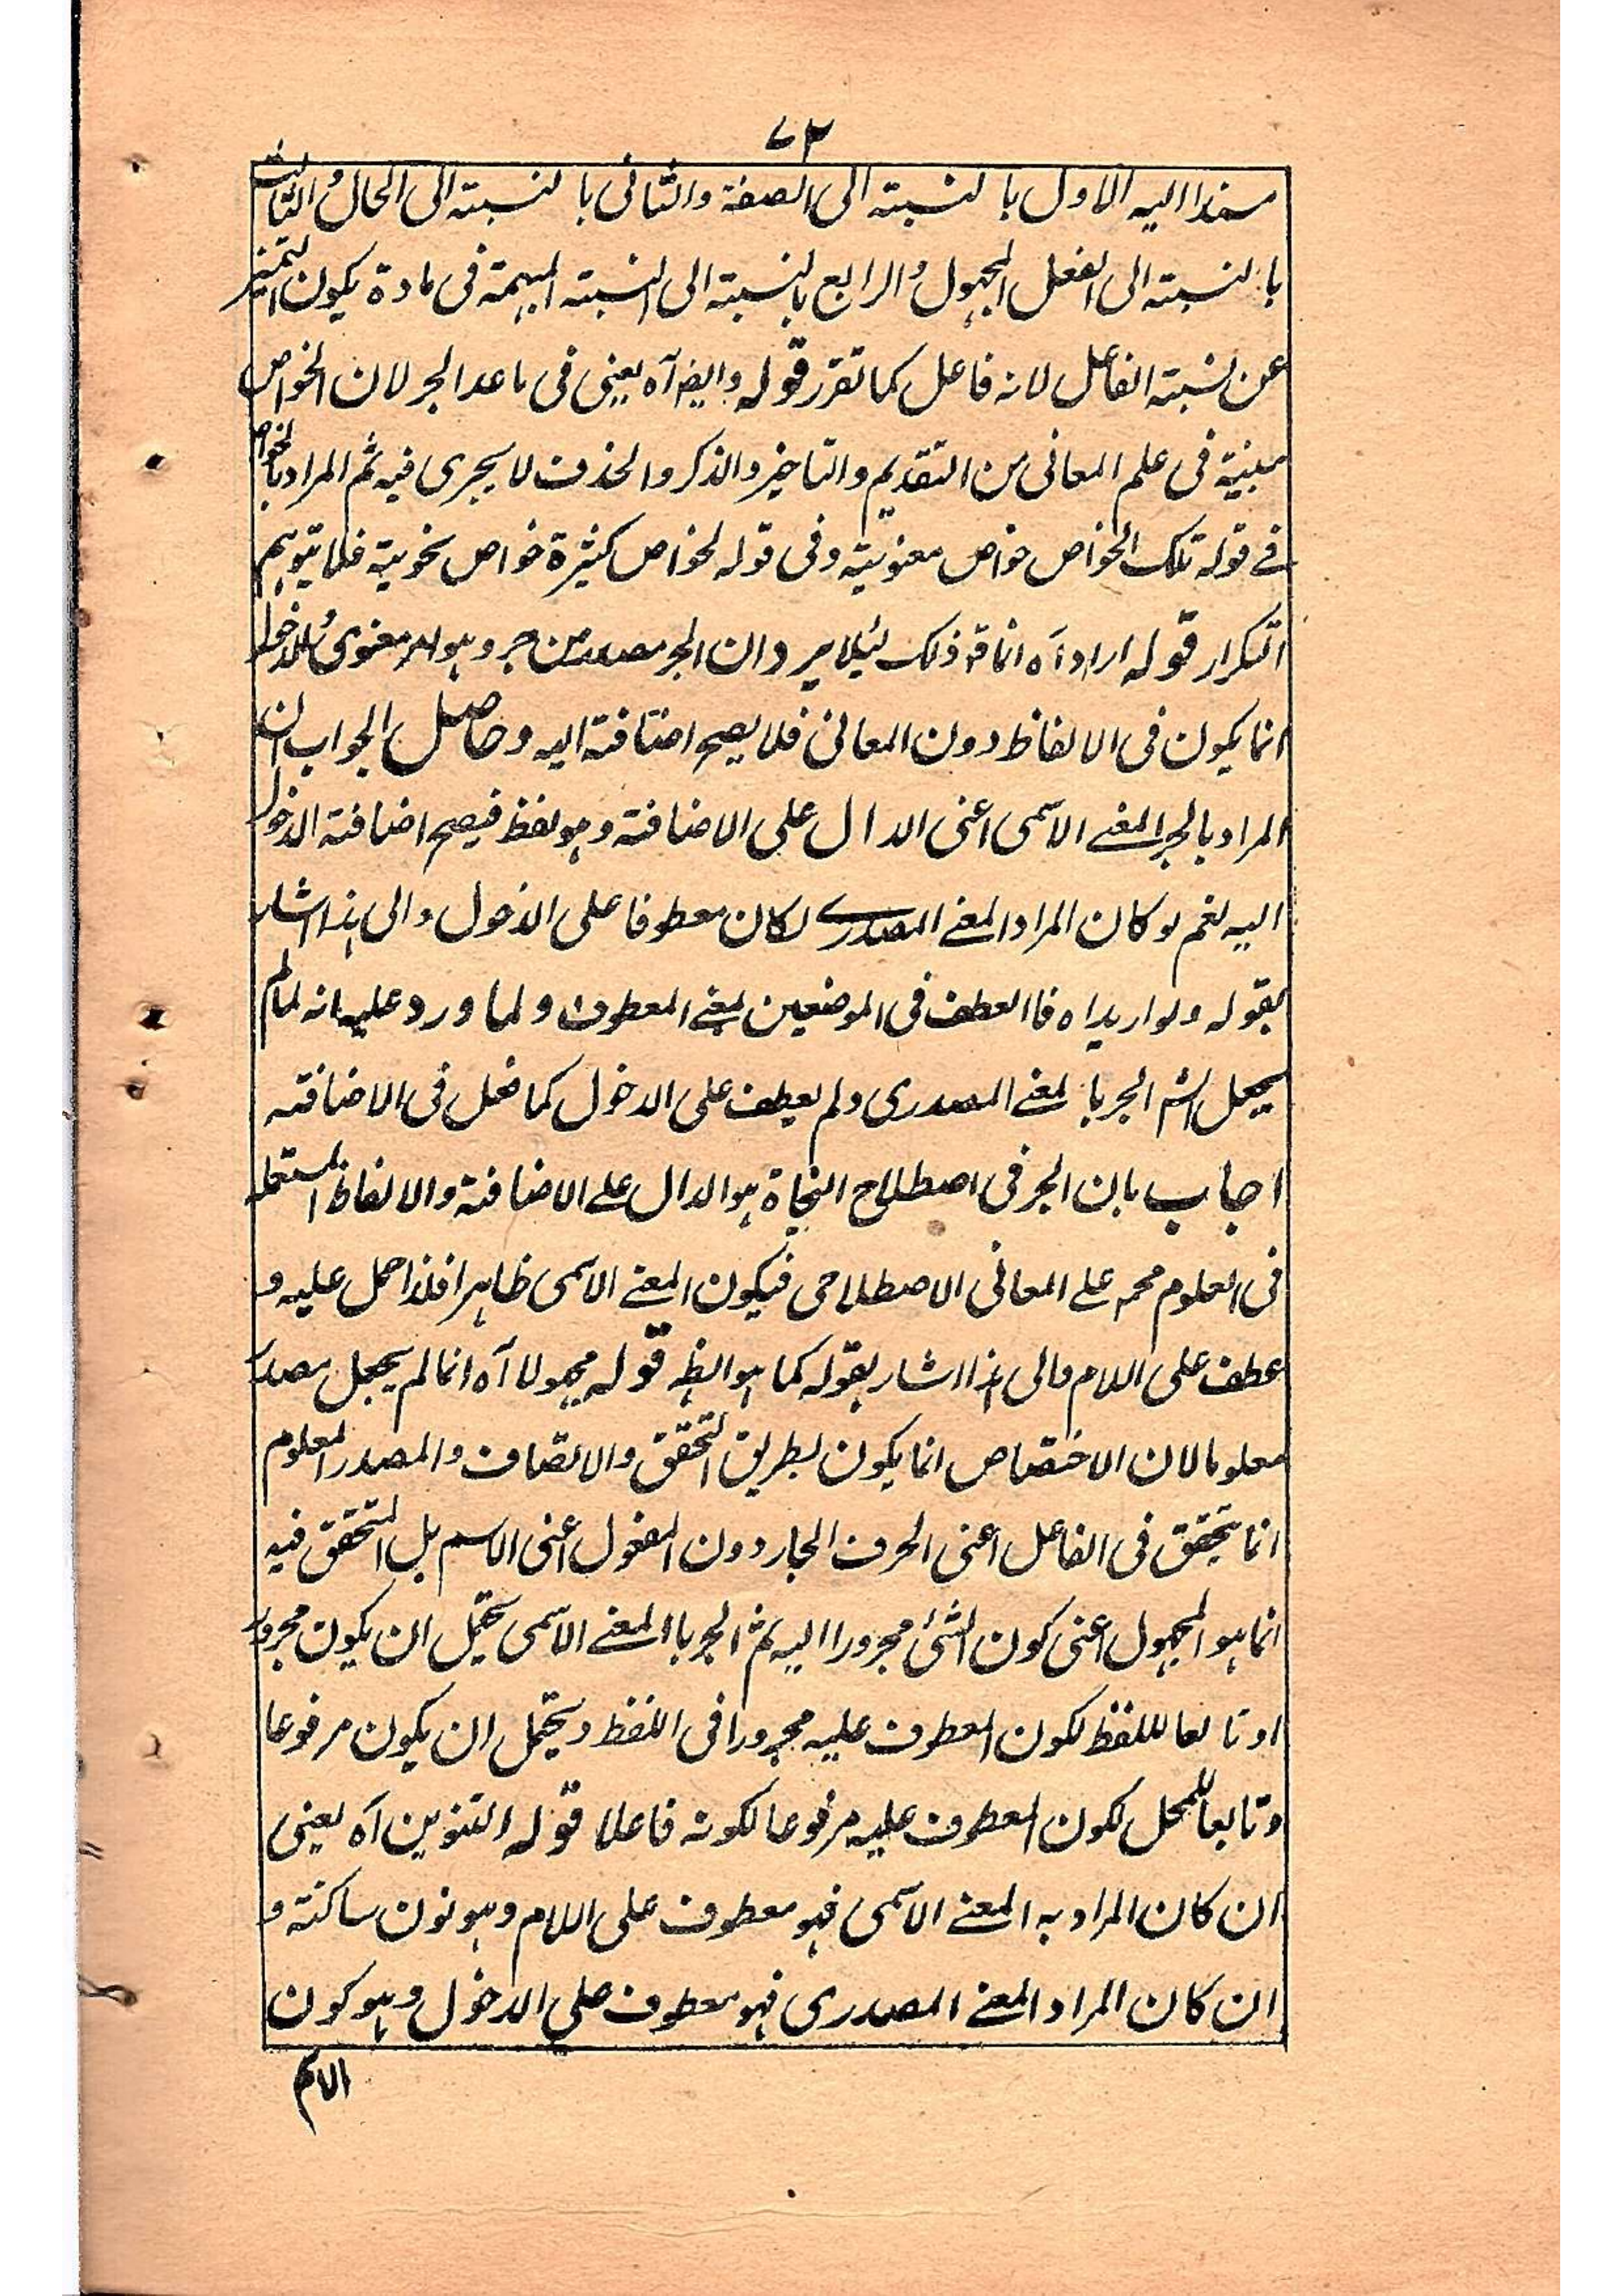 ٧٢
مسندا اليه الاول بالنسبته الى الصفة والثانى بالنسبته الى الحال والثالث
بالنسبته الى الفعل المجهول والرابع بالنسبته الى النسبته المبهمة فى مادة يكون التميز
عن نسبته الفاعل لانه فاعل كما تقرر قوله وايضا آه يعنى فى ماعدا الجر لان الخواص
مبنية فى علم المعانى من التقديم والتاخير والذكر والحذف لا يجرى فيه ثم المراد بالخواص
فے قوله تلك الخواص خواص معنوية وفى قوله لخواص كثيرة خواص نحوية فلا يتوهم
التكرار قوله اراد آه انما قد ذلك لئلا يرد ان الجر مصدر من جر وهو امر معنوى والدخول
انما يكون فى الالفاظ دون المعانى فلا يصح اضافته اليه وحاصل الجواب ان
المراد بالجر المعنے الاسمى اعنى الدال على الاضافة وهو لفظ فيصح اضافة الدخول
اليه نعم لو كان المراد المعنے المصدرے لكان معطوفا على الدخول والى هذا اشار
بقوله ولو اريد اه فالعطف فى الموضعين بمعنے المعطوف ولما ورد عليه انه لما لم
يجعل الش الجر بالمعنے المصدرى ولم يعطف على الدخول كما فعل فى الاضافته
اجاب بان الجر فى اصطلاح النحاة هو الدال علے الاضافة والالفاظ المستعملة
فى العلوم محمه علے المعانى الاصطلاحى فيكون المعنے الاسمى ظاهرا فلذا حمل عليه و
عطف على اللام والى هذا اشار بقوله كما هو الظ قوله مجهولا آه انما لم يجعل مصدرا
معلوما لان الاختصاص انما يكون بطريق التحقق والاتصاف والمصدر المعلوم
انما يتحقق فى الفاعل اعنى الحرف الجار دون المفعول اعنى الاسم بل المتحقق فيه
انما هو المجهول اعنى كون الشئ مجرورا اليه ثم الجر بالمعنے الاسمى يحتمل ان يكون مجرورا
او تابعا للفظ لكون المعطوف عليه مجرورا فى اللفظ ويحتمل ان يكون مرفوعا
وتابعا للمحل لكون المعطوف عليه مرفوعا لكونه فاعلا قوله التنوين آه يعنى
ان كان المراد به المعنے الاسمى فهو معطوف على اللام وهو نون ساكنة و
ان كان المراد المعنے المصدرى فهو معطوف على الدخول وهو كون